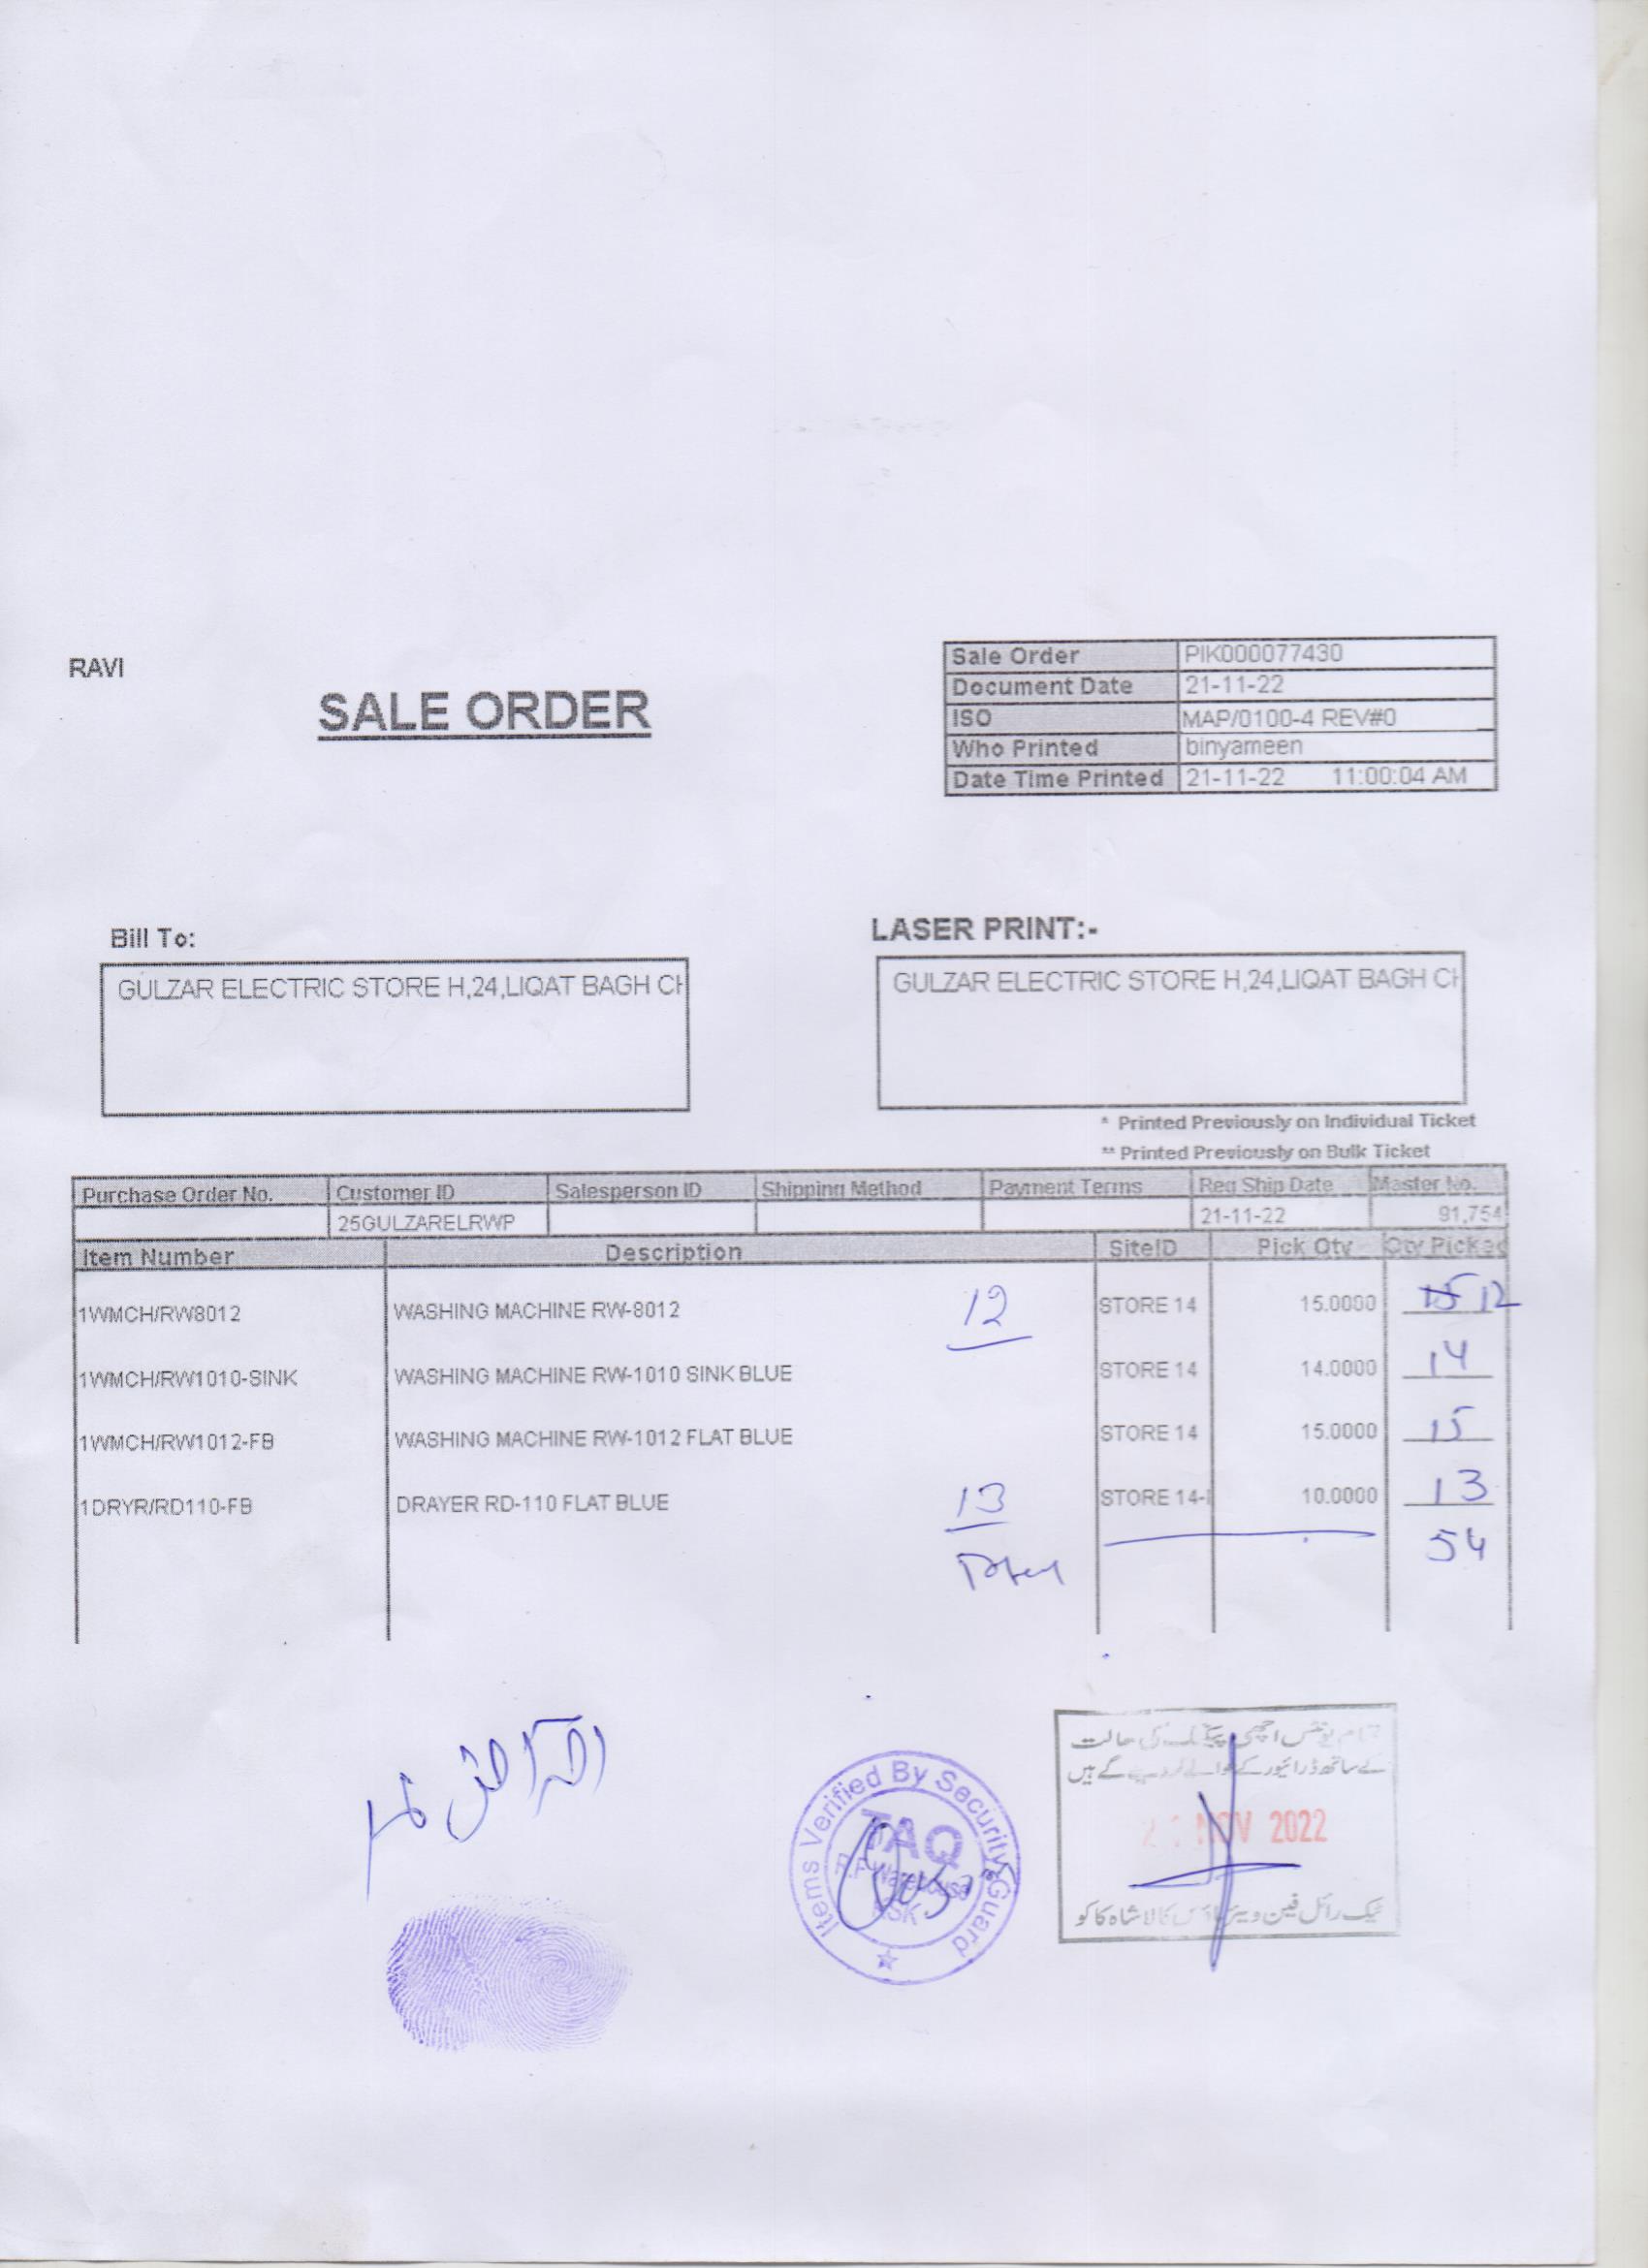 RAVI
SALE ORDER
Sale Order PIK000077430
Document Date 21-11-22
ISO MAP/0100-4 REV#0
Who Printed binyameen
Date Time Printed 21-11-22 11:00:04 AM
Bill To:
GULZAR ELECTRIC STORE H,24,LIQAT BAGH CH
LASER PRINT:-
GULZAR ELECTRIC STORE H,24,LIQAT BAGH CH
* Printed Previously on Individual Ticket
** Printed Previously on Bulk Ticket
Purchase Order No. Customer ID Salesperson ID Shipping Method Payment Terms Req Ship Date Master No.
25GULZARELRWP 21-11-22 91,754
Item Number Description SiteID Pick Qty Qty Picked
1WMCH/RW8012 WASHING MACHINE RW-8012 12 STORE 14 15.0000 15 12
1WMCH/RW1010-SINK WASHING MACHINE RW-1010 SINK BLUE STORE 14 14.0000 14
1WMCH/RW1012-FB WASHING MACHINE RW-1012 FLAT BLUE STORE 14 15.0000 15
1DRYR/RD110-FB DRAYER RD-110 FLAT BLUE 13 STORE 14-I 10.0000 13
Total 54
Items Verified By Security Guard
TAQ
Warehouse
KSK
تمام یونٹس اچھی پیکنگ کی حالت
کے ساتھ ڈرائیور کے حوالے کر دیے گئے ہیں
NOV 2022
ٹیک رائل فین ویئر ہاؤس کالا شاہ کاکو